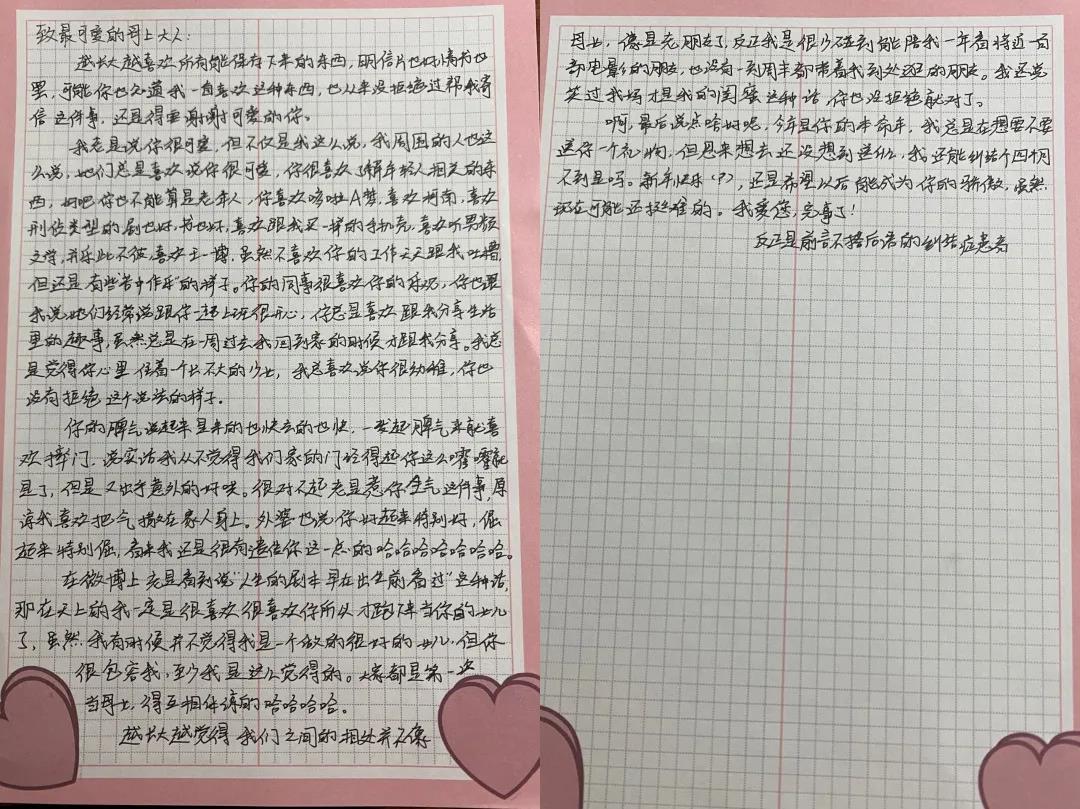 致最可爱的母上大人:
越长大越喜欢所有能保存下来的东西,明信片也好情书也
罢,可能你也知道我一直喜欢这种东西,也从来没拒绝过帮我寄
信这件事,还是得要谢谢可爱的你。
我老是说你很可爱,但不仅是我这么说,我周围的人也这
么说,她们总是喜欢说你很可爱,你很喜欢了解年轻人相关的东
西,好吧你也不能算是老年人,你喜欢哆啦A梦,喜欢柯南,喜欢
刑侦类型的剧也好,书也好,喜欢跟我买一样的手机壳,喜欢听男频
文学,并乐此不疲,喜欢王一博,虽然不喜欢你的工作天天跟我吐槽,
但还是有些“苦中作乐”的样子。你的同事很喜欢你的乐观,你也跟
我说她们经常说跟你一起上班很开心,你总是喜欢跟我分享生活
里的趣事,虽然总是在一周过去我回到家的时候才跟我分享。我总
是觉得你心里住着一个长不大的少女,我总喜欢说你很幼稚,你也
没有拒绝这个说法的样子。
你的脾气说起来是来的也快去的也快,一发起脾气来就喜
欢摔门,说实话我从不觉得我们家的门经得起你这么嚯嚯就
是了,但是又出乎意外的好哄。很对不起老是惹你生气这件事,原
谅我喜欢把气撒在家人身上。外婆也说你好起来特别好,倔
起来特别倔,看来我还是很有遗传你这一点的哈哈哈哈哈哈哈。
在微博上老是看到说“人生的剧本早在出生前看过”这种话,
那在天上的我一定是很喜欢很喜欢你所以才跑下来当你的女儿
了,虽然我有时候并不觉得我是一个做的很好的女儿,但你
很包容我,至少我是这么觉得的。大家都是第一次
当母女,得互相体谅的哈哈哈哈。
越长大越觉得我们之间的相处并不像
母女,像是老朋友了,反正我是很少碰到能陪我一年看将近一百
部电影的朋友,也没有一到周末都带着我到处逛的朋友。我还说
笑过我妈才是我的闺蜜这种话,你也没拒绝就对了。
啊,最后说点啥好呢,今年是你的本命年,我总是在想要不要
送你一个礼物,但思来想去还没想到送什么,我还能纠结个四个月
不到是吗。新年快乐(?),还是希望以后能成为你的骄傲,虽然
现在可能还挺难的。我爱您,完事了!
反正是前言不搭后语的纠结症患者